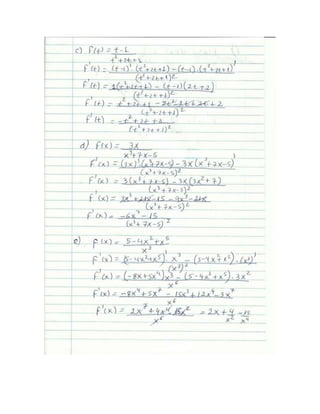 c) f(t) = t-1 / t²+2t+1
f'(t) = (t-1)'(t²+2t+1)-(t-1).(t²+2t+1)' / (t²+2t+1)²
f'(t) = 1(t²+2t+1) - (t-1)(2t+2) / (t²+2t+1)²
f'(t) = t²+2t+1 - 2t²-2t+2t+2 / (t²+2t+1)²
f'(t) = -t²+2t+3 / (t²+2t+1)²
d) f(x) = 3x / x³+7x-5
f'(x) = (3x)'(x³+7x-5)-3x(x³+7x-5)' / (x³+7x-5)²
f'(x) = 3(x³+7x-5)-3x(3x²+7) / (x³+7x-5)²
f'(x) = 3x³+21x-15-9x³-21x / (x³+7x-5)²
f'(x) = -6x³-15 / (x³+7x-5)²
e) f(x) = 5-4x²+x⁵ / x³
f'(x) = (5-4x²+x⁵)' x³ - (5-4x²+x⁵).(x³)' / (x³)²
f'(x) = (-8x+5x⁴)x³ - (5-4x²+x⁵).3x² / x⁶
f'(x) = -8x⁴+5x⁷ - 15x²+12x⁴-3x⁷ / x⁶
f'(x) = 2x⁷+4x⁴-15x² / x⁶ = 2x+4/x² -15/x⁴